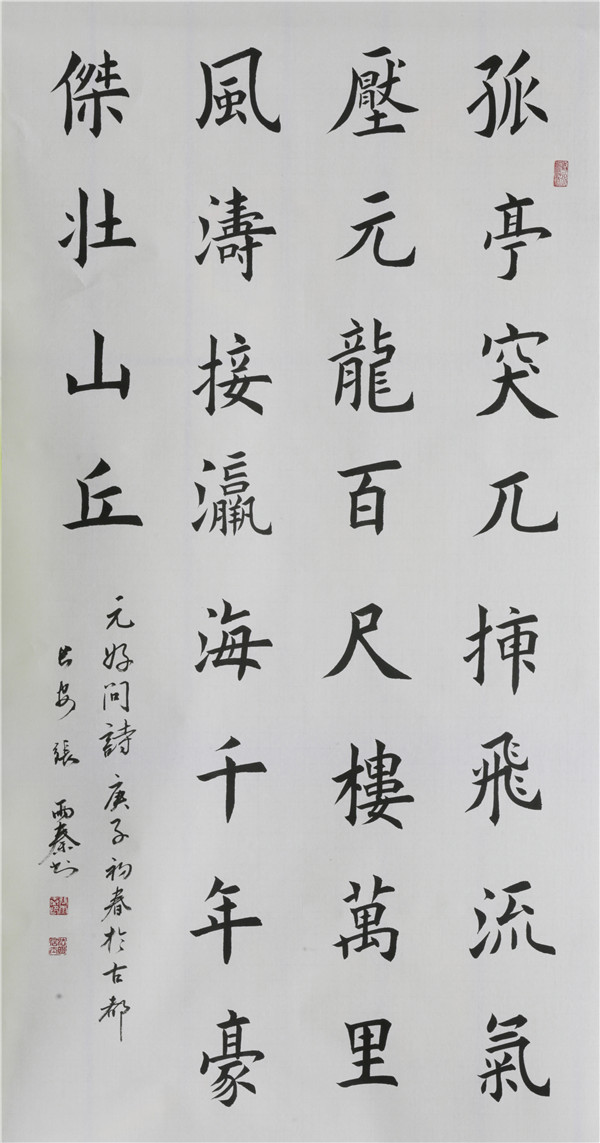 孤亭突兀挿飛流氣
壓元龍百尺樓萬里
風濤接瀛海千年豪
傑壯山丘
元好問詩庚子初春於古都
長安張雨秦书